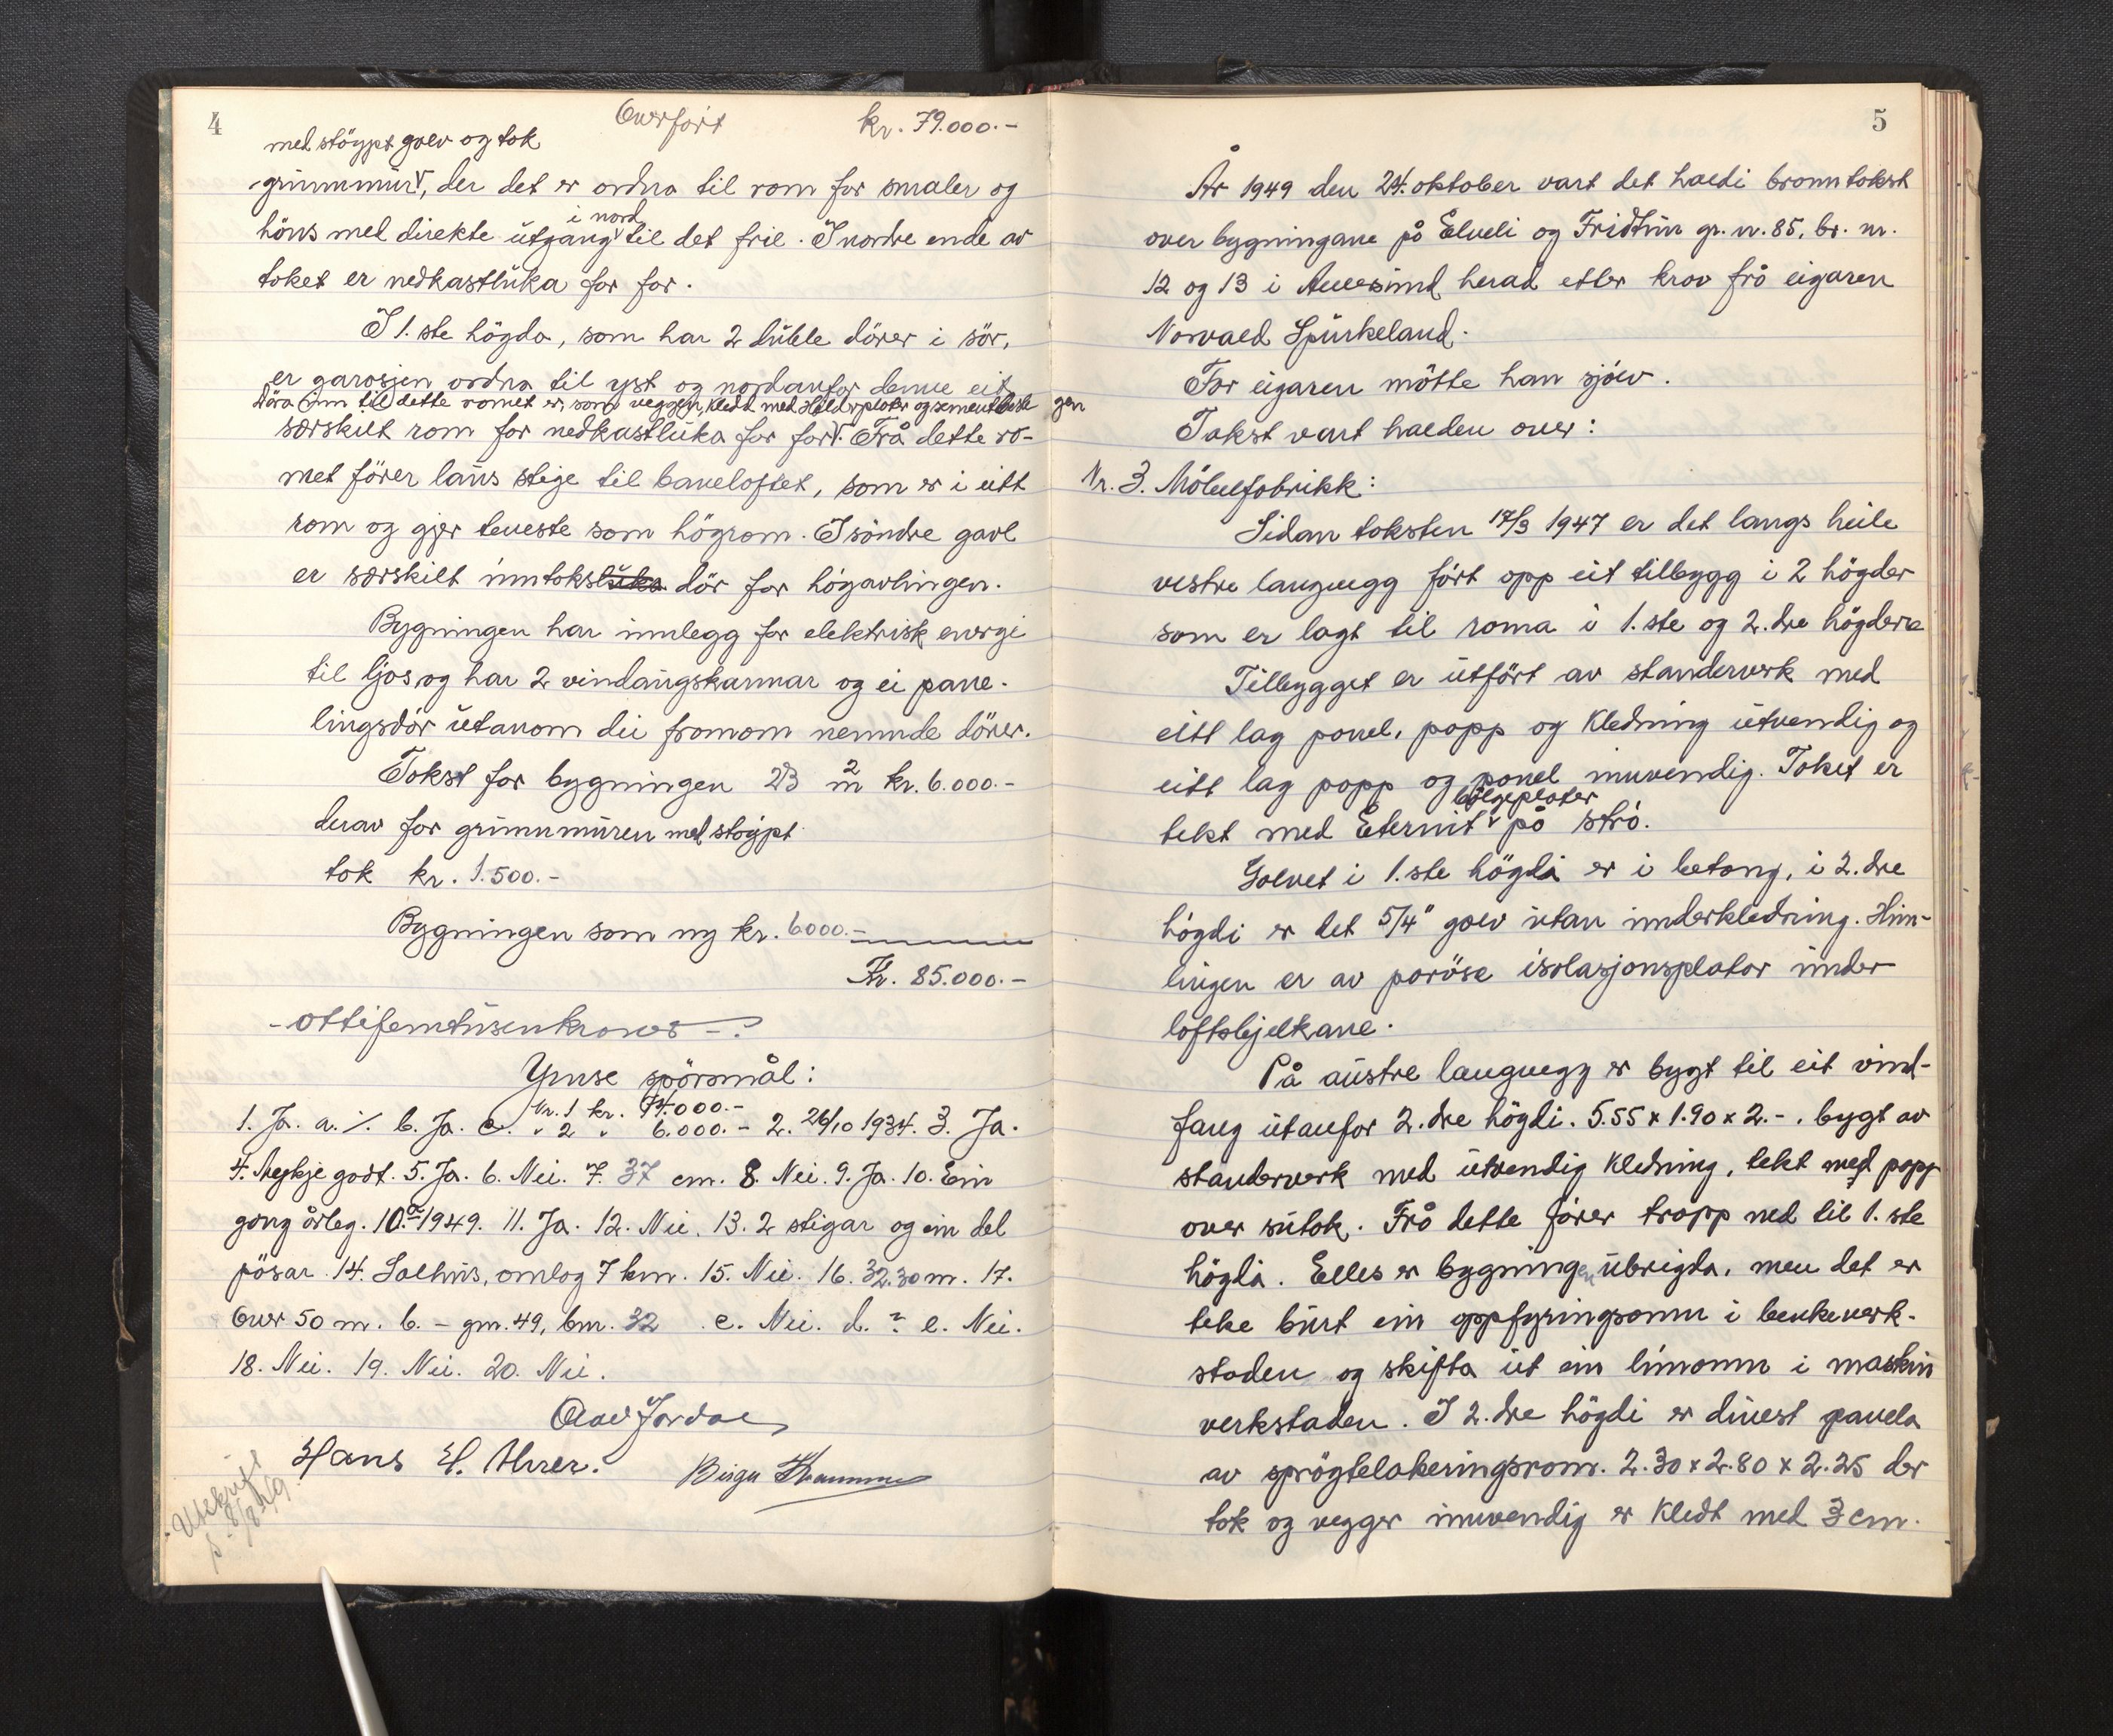 4
Overført kr. 79.000.-
med støypt golv og tak
grunnmur, der det er ordna til rom for smaler og
i nord
höns med direkte utgang til det frie. I nordre ende av
taket er nedkastluka for for.
I 1.ste högda, som har 2 duble dörer i sör,
er garasjen ordna til yst og nordanfor denne eit
Döra inn til dette romet er, som veggen, kledd med
særskilt rom for nedkastluka for for. Frå dette ro-
met förer laus stige til baueloftet, som er i eitt
rom og gjer teneste som höyrom. I söndre gavl
er særskilt inntaksluka dör for höyavlingen.
Bygningen har innlegg for elektrisk energi
til ljos, og har 2 vindaugskarmar og ei pane-
lingsdör utanom dei framom nemnde dörer.
Takst for bygningen 23 m2 kr. 6.000.-
derav for grunnmuren med støypt
tak kr. 1.500.-
Bygningen som ny kr. 6000.-
Kr. 85.000.-
- ottifemtusenkroner -
Ymse spörsmål:
Nr. 1 kr. 74.000.-
1. Ja. a. ٪ b. Ja. c. " 2 " 6.000.- 2. 26/10 1934. 3. Ja.
4. Meykje godt. 5. Ja. 6. Nei. 7. 37 cm. 8. Nei. 9. Ja. 10. Ein
gong årleg. 10.a 1949. 11. Ja. 12. Nei. 13. 2 stigar og ein del
pösar. 14. Salhus, omlag 7 km. 15. Nei. 16. 32.30 m. 17.
Over 50 m. b. - gnr. 49, bnr. 32 . c. Nei. d. ? e. Nei.
18. Nei. 19. Nei. 20. Nei.
Olav Jordal
Hans H.
Birger
Utskrift
8/8 49
5
År 1949 den 24. oktober vart det haldi branntakst
over bygningane på Elveli og Fridtun gr. nr. 85, br. nr.
12 og 13 i herad etter krav frå eigaren
Norvald Spurkeland.
For eigaren mötte han sjölv.
Takst vart halden over:
Nr. 3. Möbelfabrikk:
Sidan taksten 17/3 1947 er det langs heile
vestre langvegg fört opp eit tilbygg i 2 högder
som er lagt til roma i 1.ste og 2.dre högdere
Tilbygget er utfört av standerverk med
eitt lag panel, papp og kledning utvendig og
eitt lag papp og panel innvendig. Taket er
bölgeplater
tekt med Eternit på strö.
Golvet i 1.ste högda er i betong, i 2.dre
högdi er det 5/4" golv utan underkledning. Him-
lingen er av poröse isolasjonsplater under
loftsbjelkane.
På austre langvegg er bygt til eit vind-
fang utanfor 2.dre högdi. 5.55 x 1.90 x 2.-. bygt av
standerverk med utvendig kledning, tekt med papp
over sutak. Frå dette förer trapp ned til 1.ste
högda. Elles er bygningen ubrigda, men det er
teke burt ein oppfyringsomn i benkeverk-
staden og skifta ut ein limomn i maskin
verkstaden. I 2.dre högdi er panela
av spröytelakeringsrom. 2.30 x 2.80 x 2.25 der
tak og vegger innvendig er kledt med 3 cm.